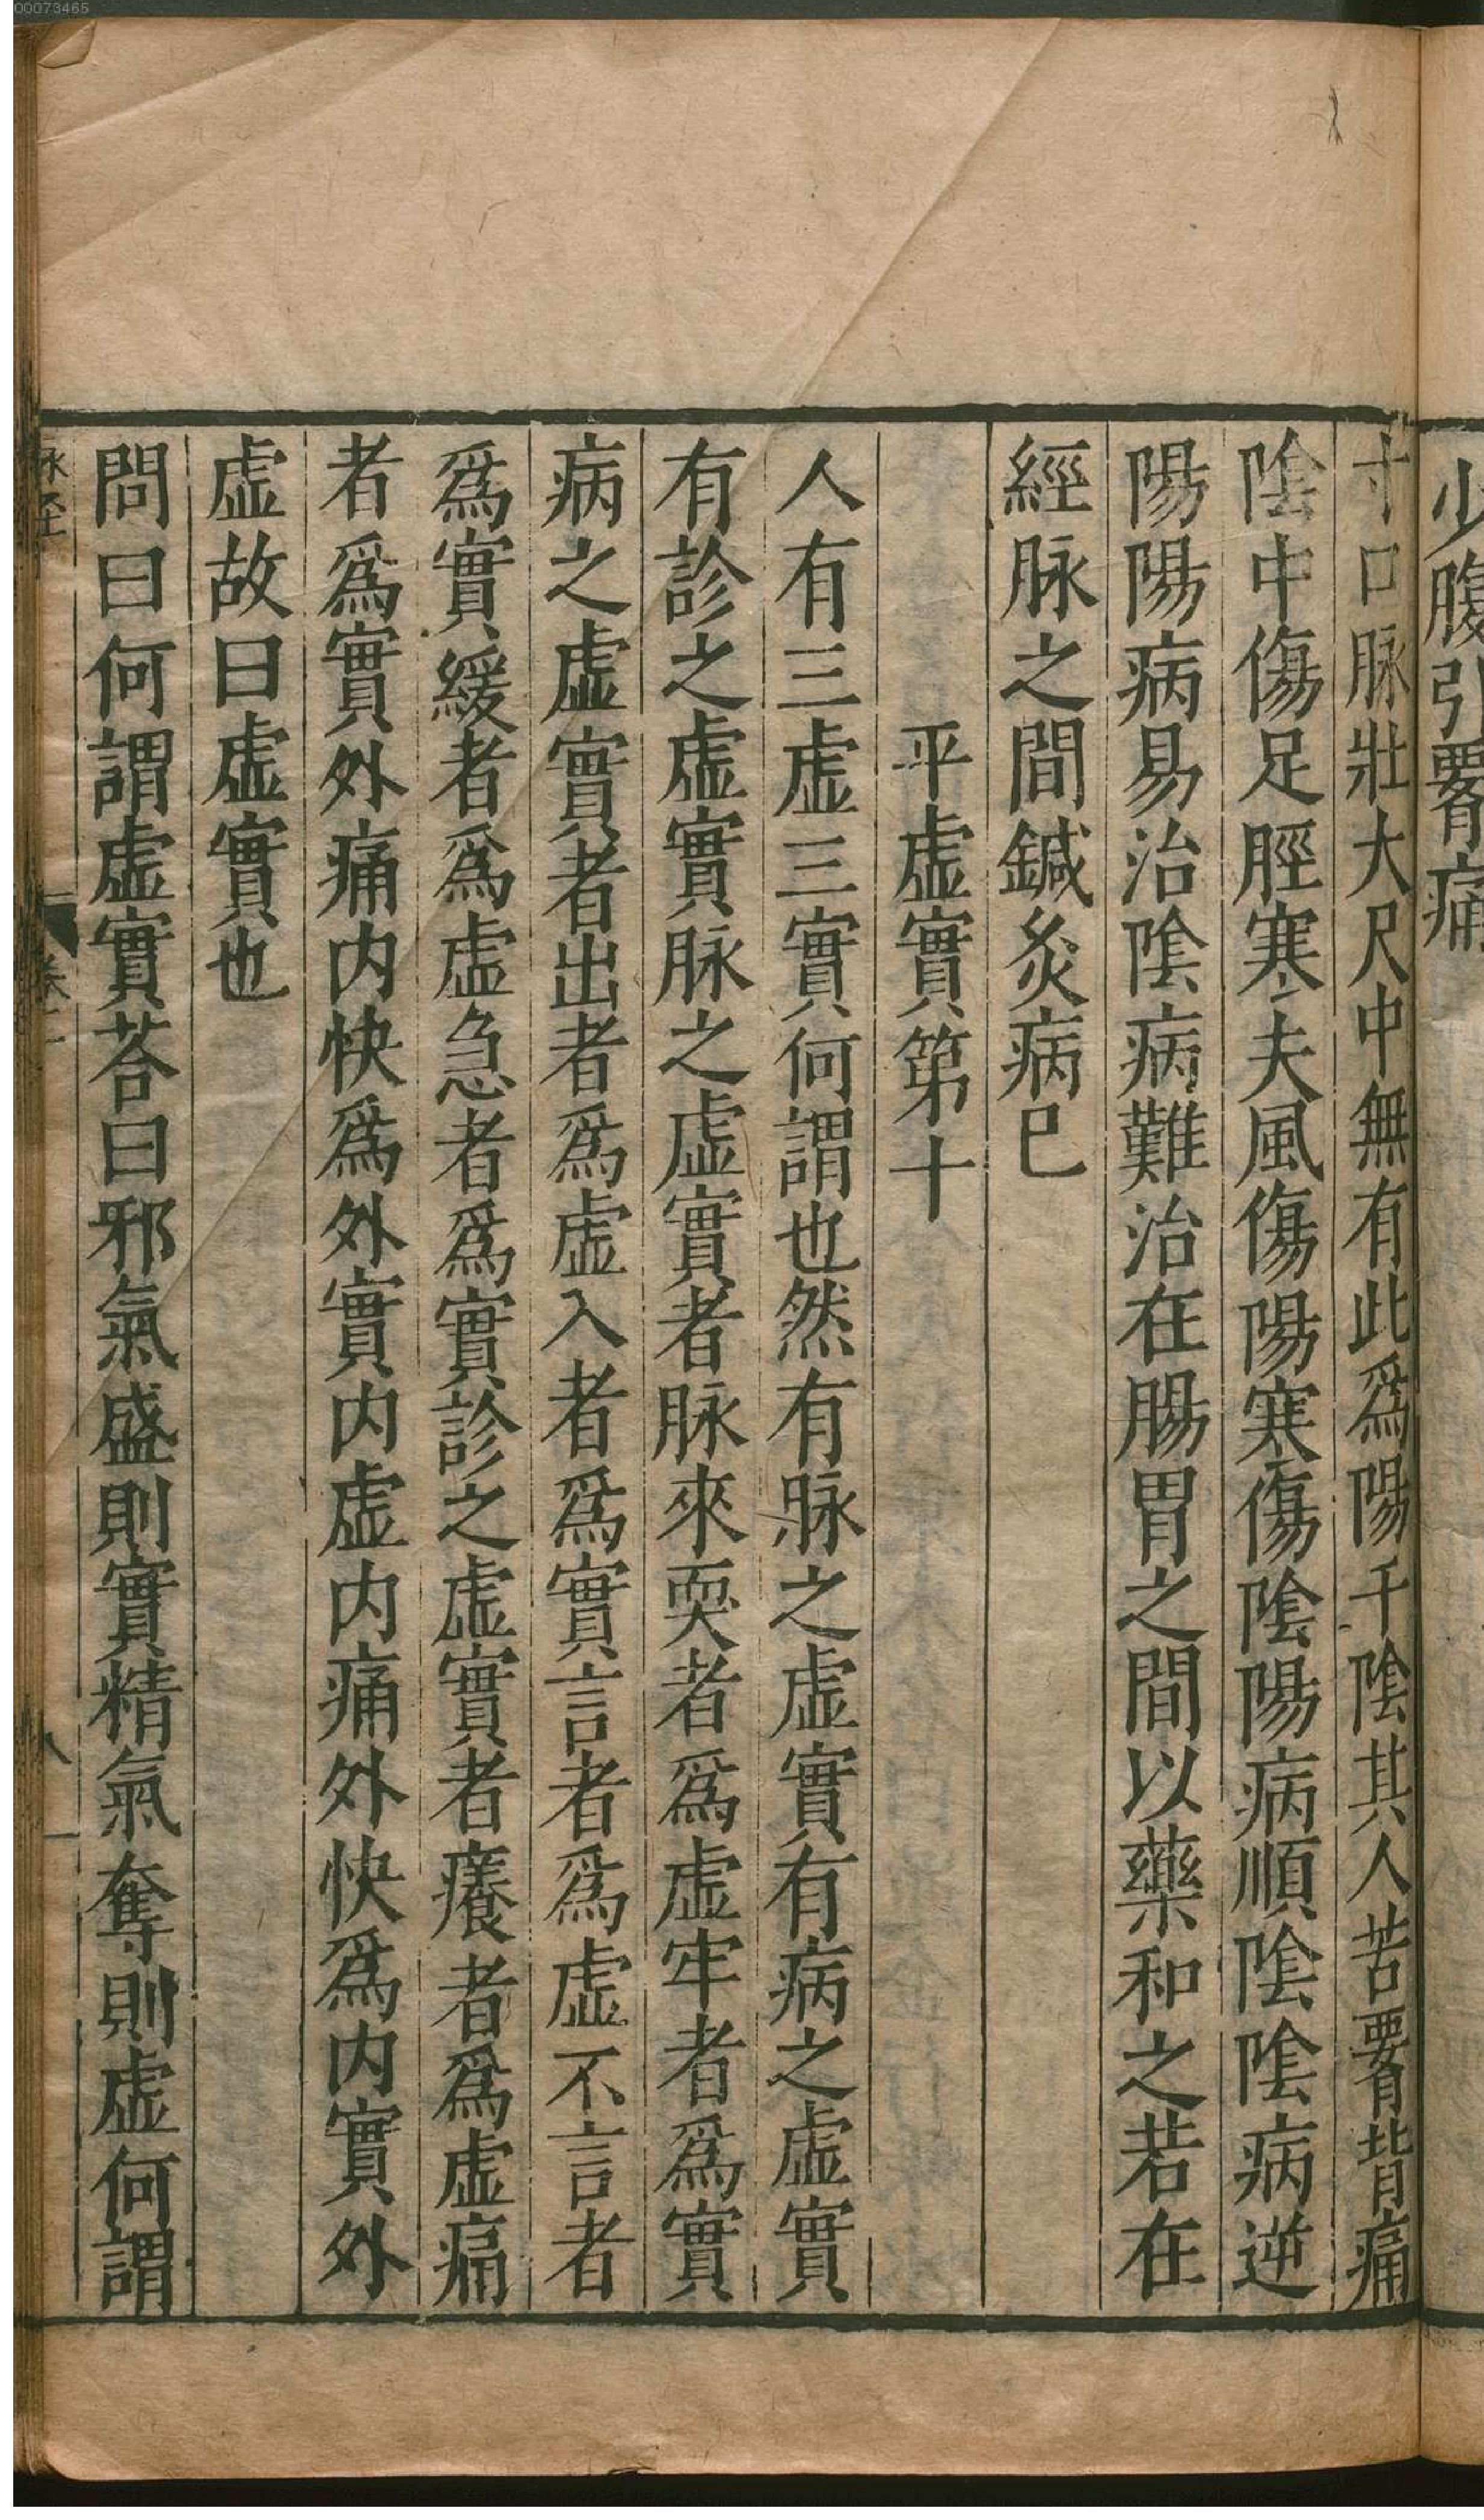 00073465
少腹引𦝫痛
寸口脉壯大尺中無有此爲陽干陰其人苦𦝫背痛
陰中傷足脛寒夫風傷陽寒傷陰陽病順陰陰病逆
陽陽病易治陰病難治在腸胃之間以藥和之若在
經脉之間鍼灸病已
平虛實第十
人有三虛三實何謂也然有脉之虛實有病之虛實
有診之虛實脉之虛實者脉來耎者爲虛牢者爲實
病之虛實者出者爲虛入者爲實言者爲虛不言者
爲實緩者爲虛急者爲實診之虛實者癢者爲虛痛
者爲實外痛内快爲外實内虛内痛外快爲内實外
虛故曰虛實也
問曰何謂虛實荅曰邪氣盛則實精氣奪則虛何謂